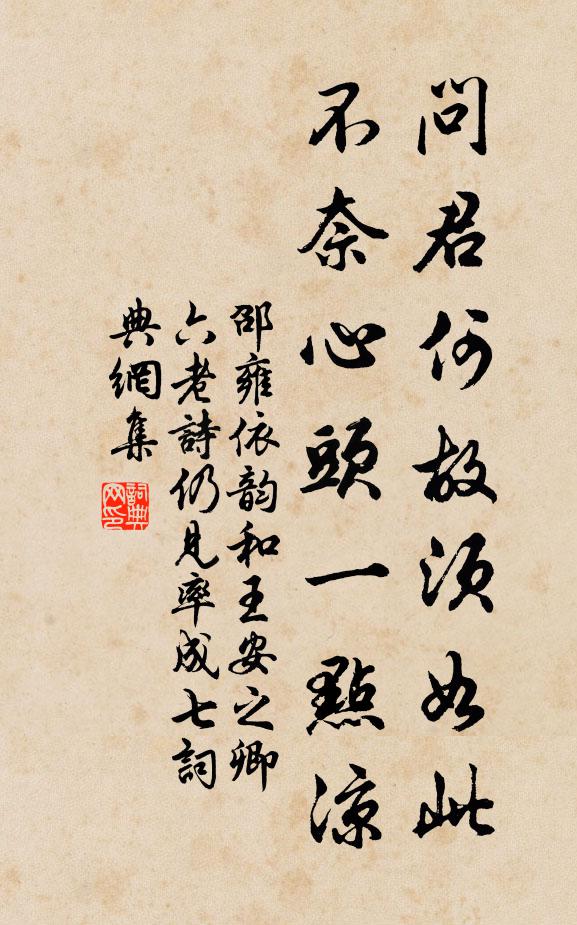 問君何故須如此
不奈心頭一點涼
邵雍依韵和王安之卿
六老詩仍見率成七詞
典網集
詞典网印